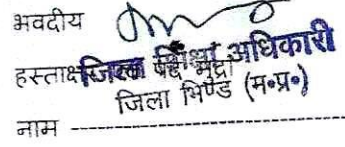 भवदीय
हस्ताक्षर एवं पद मुद्रा
जिला शिक्षा अधिकारी
जिला भिण्ड (म॰प्र॰)
नाम ------------------------